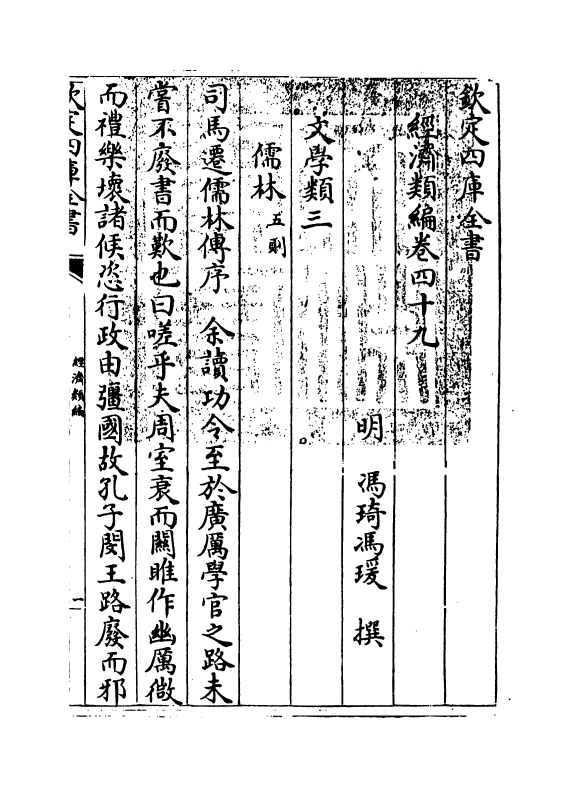 欽定四庫全書
經濟類編卷四十九
明 馮琦馮瑗 撰
文學類三
儒林五則
司馬遷儒林傳序 余讀功令至於廣厲學官之路未
嘗不廢書而歎也曰嗟乎夫周室衰而關雎作幽厲微
而禮樂壞諸侯恣行政由彊國故孔子閔王路廢而邪
欽定四庫全書
經濟類編
一